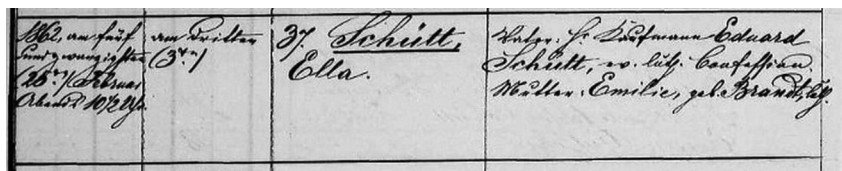 1862, am fünf
und zwanzigsten
(25ten) Februar
Abends 10½ Uhr.
am dritten
(3ten)
37. Schütt,
Ella.
Vater: Hr. Kaufmann Eduard
Schütt, ev. luth. Confession
Mutter: Emilie, geb. Brandt,